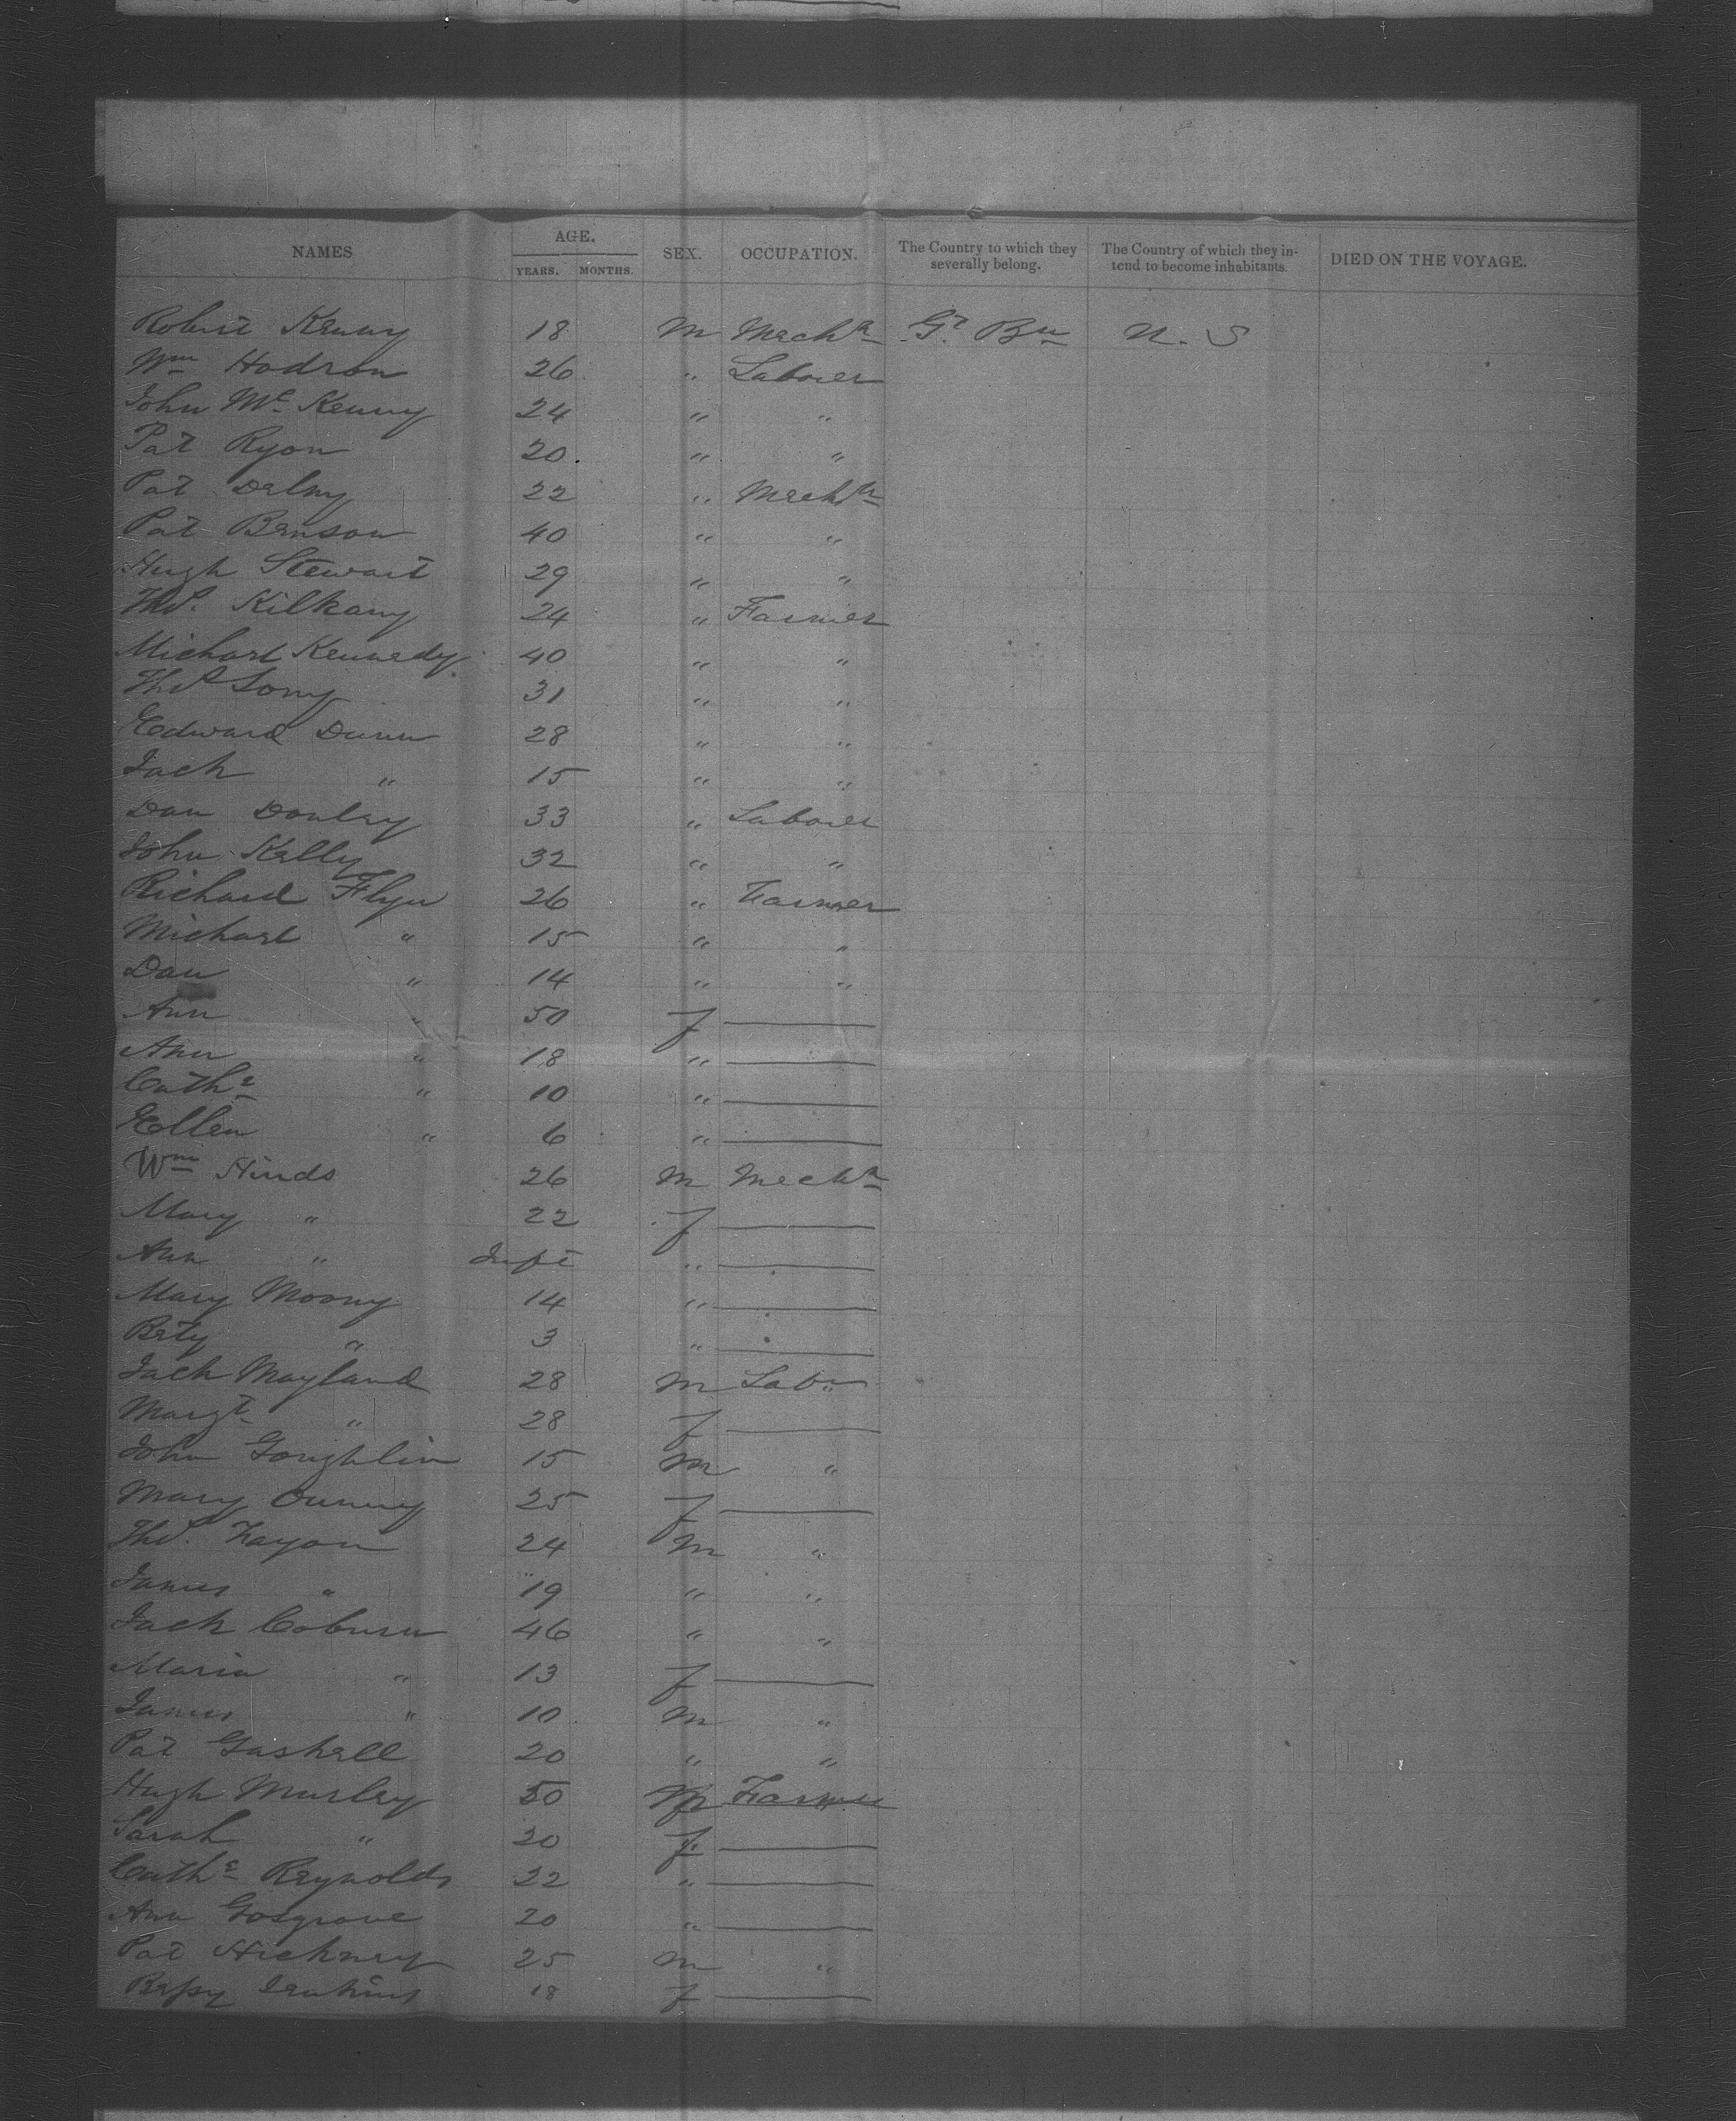 NAMES AGE. SEX. OCCUPATION. The Country to which they severally belong. The Country of which they intend to become inhabitants. DIED ON THE VOYAGE.
YEARS. MONTHS.
Robert Kenny 18 M Mechn Gt Bn U. S
Wm Hodson 26 " Laborer
John McKenny 24 " "
Pat Ryon 20 " "
Pat Delny 22 " Mechn
Pat Benson 40 " "
Hugh Stewart 29 " "
Thos. Kilkany 24 " Farmer
Michael Kennedy 40 " "
Thos 31 " "
Edward Dunn 28 " "
Jack " 15 " "
Dan Donley 33 " Laborer
John Kelly 32 " "
Richard Flyn 26 " Farmer
Michael " 15 " "
Dan " 14 " "
Ann " 50 f —
Ann " 18 " —
Cathe " 10 " —
Ellen " 6 " —
Wm Hinds 26 M Mechn
Mary " 22 f —
Ann " Inft " —
Mary Moony 14 " —
Bety " 3 " —
Jack Mayland 28 M Labr
Margt " 28 f —
John Goughlin 15 M "
Mary 25 f —
Thos. Fayon 24 M "
James " 19 " "
Jack Coburn 46 " "
Maria " 13 f —
James " 10 M "
Pat Gaskell 20 " "
Hugh Murley 50 M Farmer
Sarah " 20 f —
Cathe Reynolds 22 " —
Ann Gosgrove 20 " —
Pat Hickney 25 M "
Bessy Jenkins 18 f —